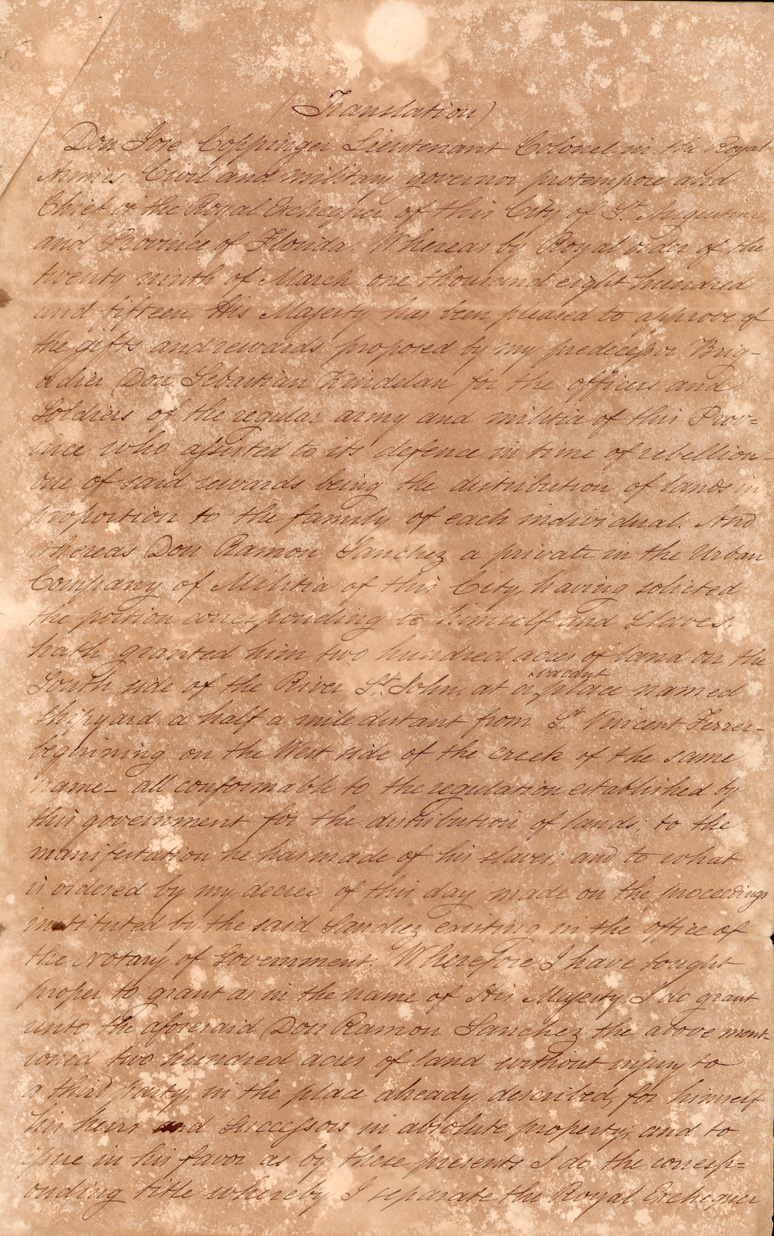 (Translation)
Don Jose Coppinger Lieutenant Colonel in the Royal
Armies Civil and military governor protempore and
Chief of the Royal Exchequer of this City of St. Augustine
and Province of Florida. Whereas by Royal order of the
twenty ninth of March one thousand eight hundred
and fifteen His Majesty has been pleased to approve of
the gifts and rewards proposed by my predecessor Brig-
adier Don Sebastian Kindelan for the officers and
Soldiers of the regular army and militia of this Prov=
ince who assisted to its defence in time of rebellion-
one of said rewards being the distribution of lands in
proportion to the family of each individual. And
Whereas Don Ramon Sanchez a private in the Urban
Company of Militia of this City, having solicted
the portion corresponding to himself and Slaves,
hath granted him two hundred acres of land on the
South side of the River St. John, at a vacant place named
Shipyard a half a mile distant from St. Vincent Ferrer-
beginning on the West side of the creek of the same
name- all conformable to the regulation established by
this government for the distribution of lands; to the
manifestation he has made of his slaves; and to what
is ordered by my decree of this day made on the proceedings
instituted by the said Sanchez existing in the office of
the Notary of Government. Wherefore I have tought
proper to grant as in the name of His Majesty I do grant
unto the aforesaid Don Ramon Sanchez the above ment-
ioned two hundred acres of land without injury to
a third party, in the place already described, for himself
his heirs and Successors in absolute property; and to
issue in his favor as by these presents I do the corresp=
onding title whereby I separate the Royal Exchequer